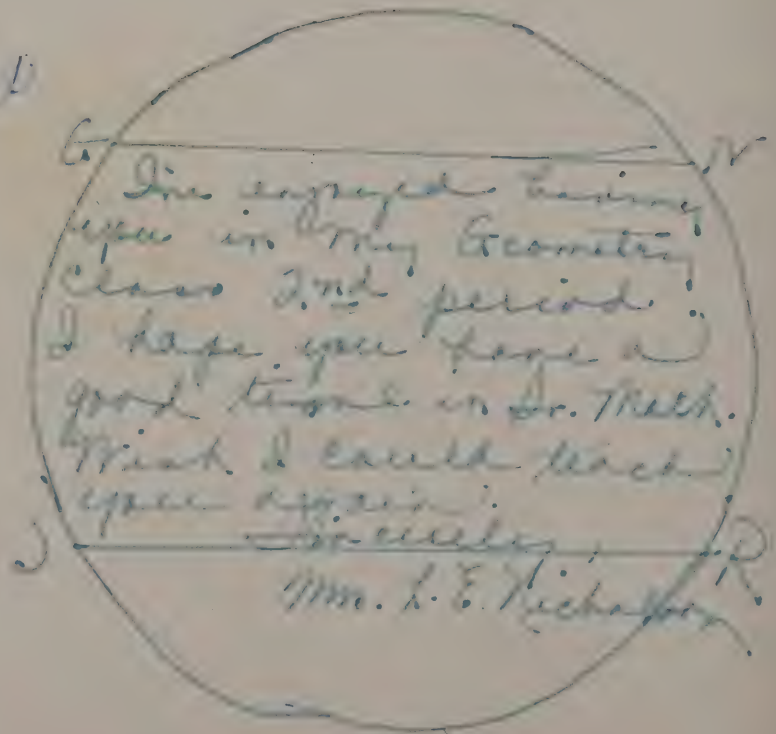 G N
I've enjoyed having
you in my Geometry
Class 2nd period.
I hope you have a
good time in Sr. Math.
Wish I could teach
you again.
Sincerely,
J R
L. E. Nicholson